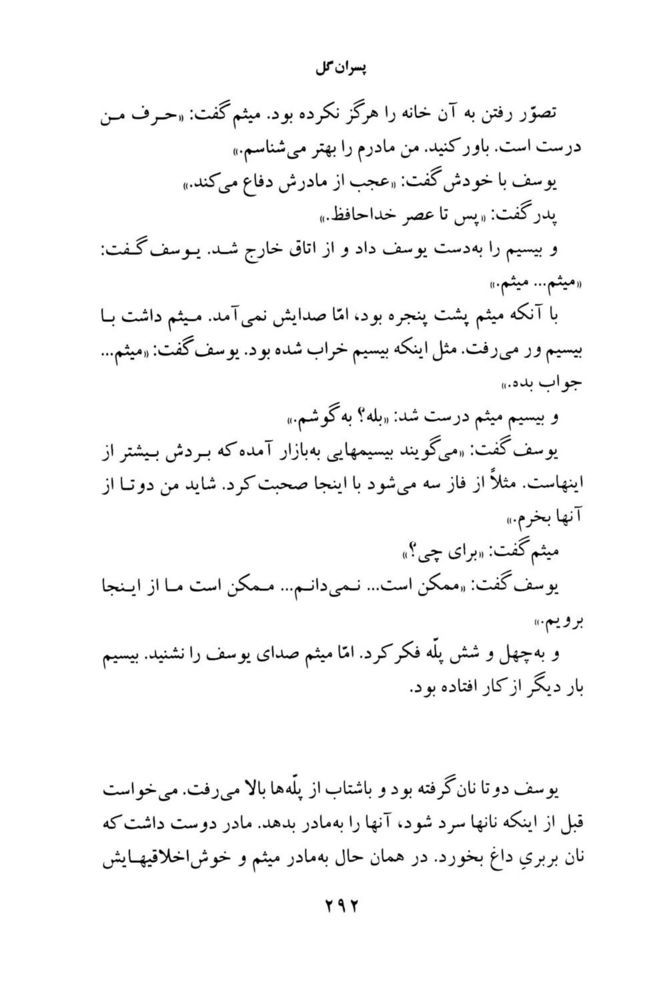 پسران گل
تصوّر رفتن به آن خانه را هرگز نکرده بود. میثم گفت: «حرف من
درست است. باور کنید. من مادرم را بهتر می‌شناسم.»
یوسف با خودش گفت: «عجب از مادرش دفاع می‌کند.»
پدر گفت: «پس تا عصر خداحافظ.»
و بیسیم را به‌دست یوسف داد و از اتاق خارج شد. یوسف گفت:
«میثم... میثم.»
با آنکه میثم پشت پنجره بود، امّا صدایش نمی‌آمد. میثم داشت با
بیسیم ور می‌رفت. مثل اینکه بیسیم خراب شده بود. یوسف گفت: «میثم...
جواب بده.»
و بیسیم میثم درست شد: «بله؟ به گوشم.»
یوسف گفت: «می‌گویند بیسیمهایی به‌بازار آمده که بردش بیشتر از
اینهاست. مثلاً از فاز سه می‌شود با اینجا صحبت کرد. شاید من دو تا از
آنها بخرم.»
میثم گفت: «برای چی؟»
یوسف گفت: «ممکن است... نمی‌دانم... ممکن است ما از اینجا
برویم.»
و به‌چهل و شش پلّه فکر کرد. امّا میثم صدای یوسف را نشنید. بیسیم
بار دیگر از کار افتاده بود.
یوسف دو تا نان گرفته بود و باشتاب از پلّه‌ها بالا می‌رفت. می‌خواست
قبل از اینکه نانها سرد شود، آنها را به‌مادر بدهد. مادر دوست داشت که
نان بربریِ داغ بخورد. در همان حال به‌مادر میثم و خوش‌اخلاقیهایش
۲۹۲